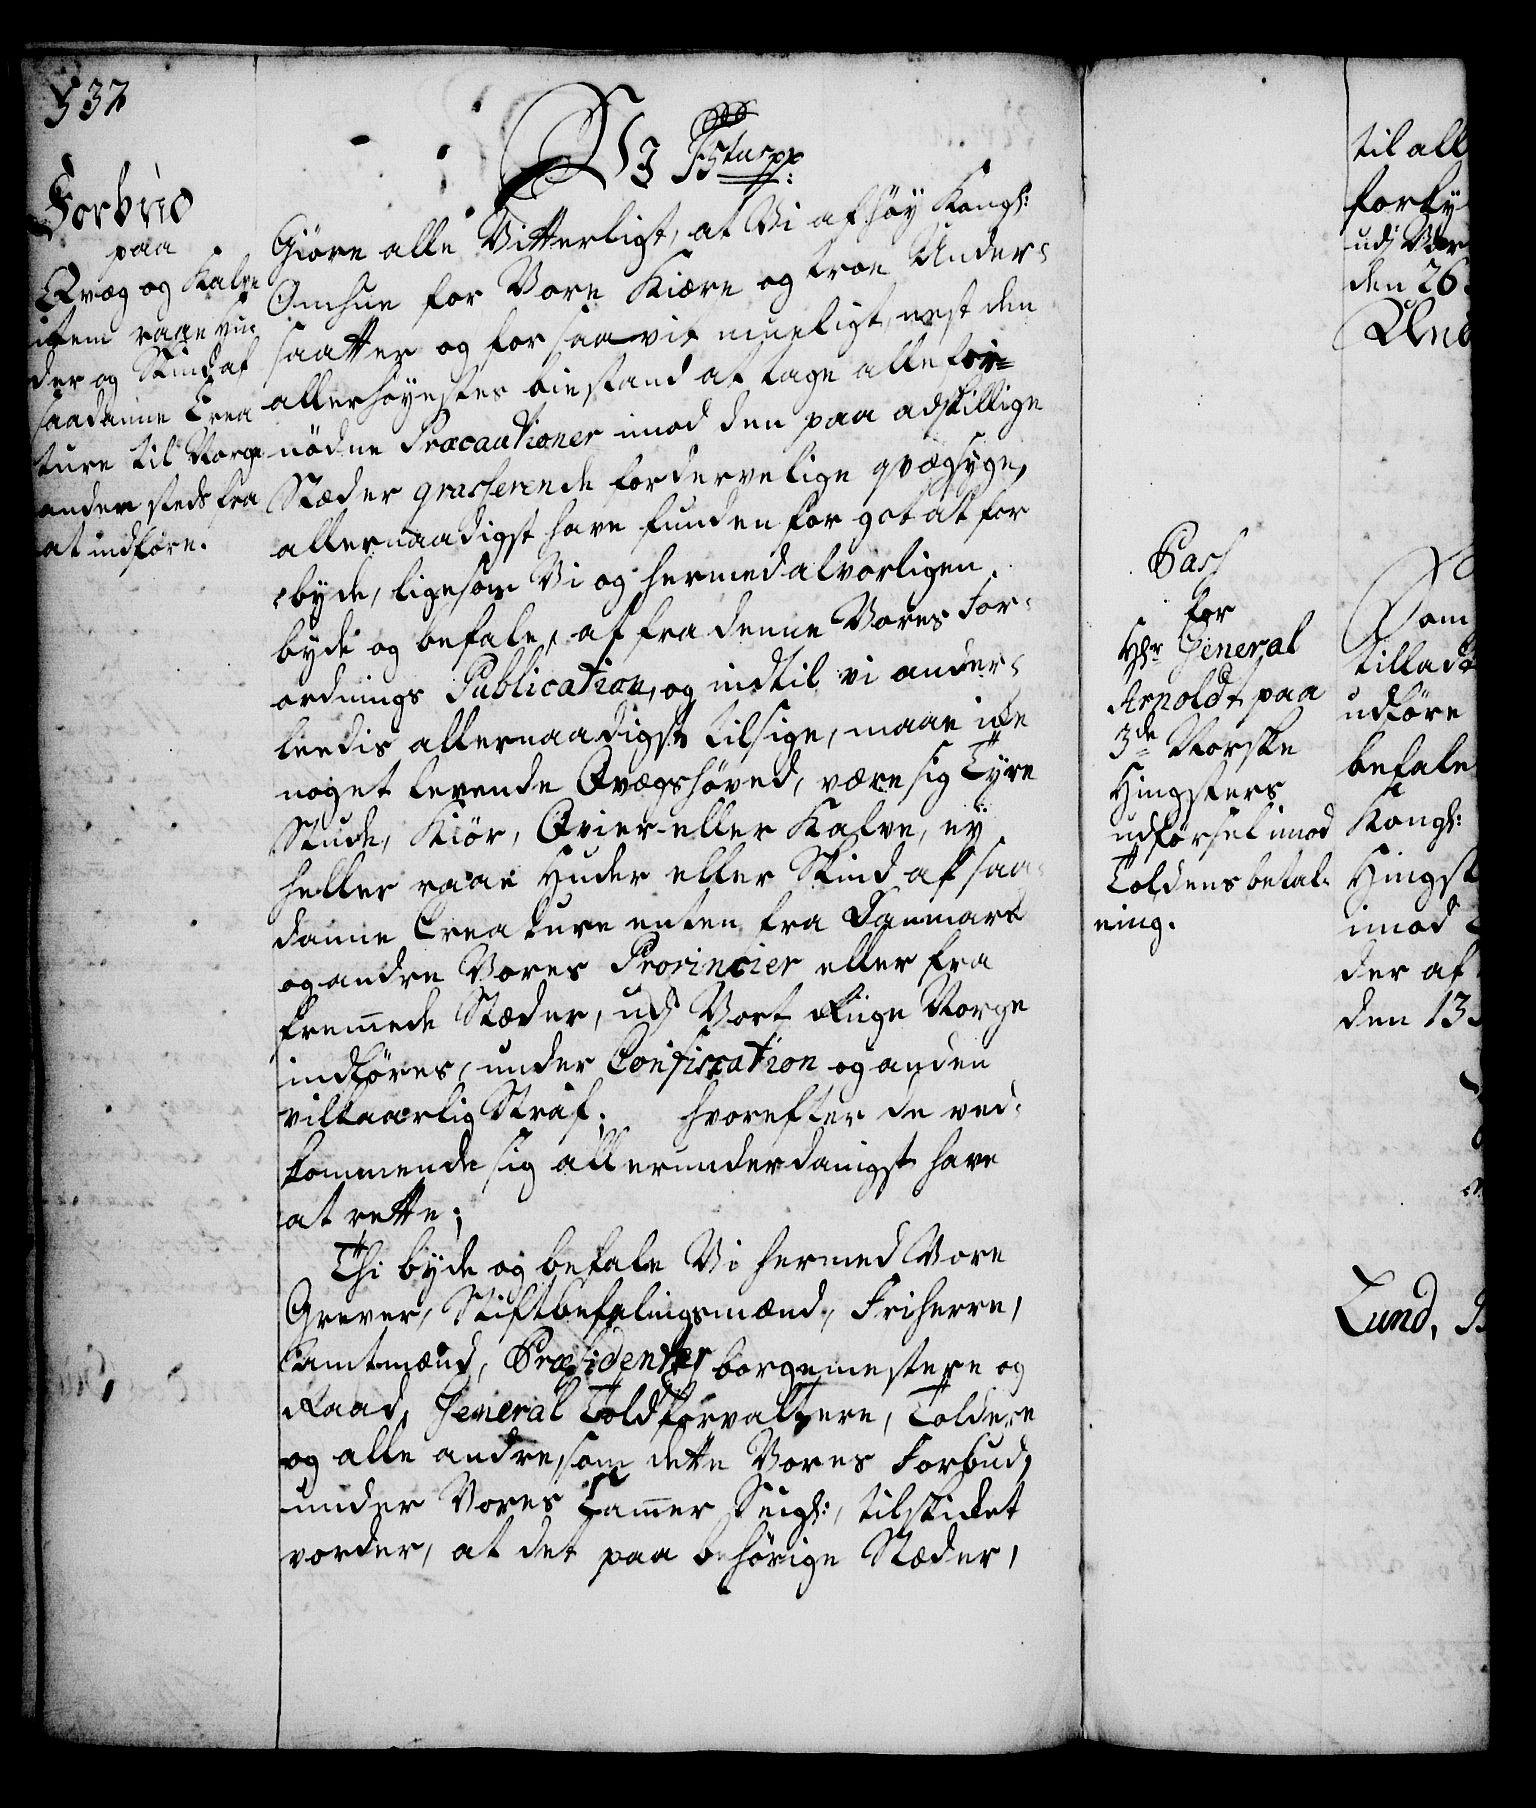 532
Forbud
paa
Qvæg og Kalve
item raae Hu¬
der og Skind af
saadanne Crea
ture til Norge
anden steds fra
at indføre.
Vi
Giøre alle Vitterligt, at Vi af høy Kongl:
Omhue for Vore Kiære og troe Under¬
saatter og for saavit mueligt, nest den
allerhøyestes biestand at tage alle for¬
nødne Præcautioner imod den paa adskillige
Stæder grasserende fordervelige qvægsyge,
allernaadigst have funden for got at for
byde, ligesom Vi og hermed alvorligen
byde og befale, at fra denne Vores For¬
ordnings Publication, og indtil vi ander¬
leedis allernaadigst tilsige, maae icke
noget levende Qvægshøved, være sig Tyre
Stude, Kiør, Qvier eller Kalve, ey
heller raae Huder eller Skind af saa¬
danne Creature enten fra Danmark
og andre Vores Provincier eller fra
fremmede Stæder, udj Vort Riige Norge
indføres, under Confiscation og anden
vilkaarlig Straf; hvorefter de ved¬
kommende sig allerunderdanigst have
at rette;
Thi byde og befale Vi hermed Vore
Grever, Stiftbefalingsmænd, Friherre,
Amtmænd, Præsidenter borgemestere og
Raad, General Toldforvaltere, Toldere
og alle andre, som dette Vores Forbud,
under Vores Cammer Seigl:, tilskicket
vorder, at det paa behørige Stæder,
Pass
for
Hr General
Arnoldt paa
3de Norske
Hingsters
udførsel imod
Toldens betal¬
ning.
til all
forky
udj Vor
den 26
Som
tillad
udføre
befale
Kongl:
Hingst
imod
der af
den 13
Lund,